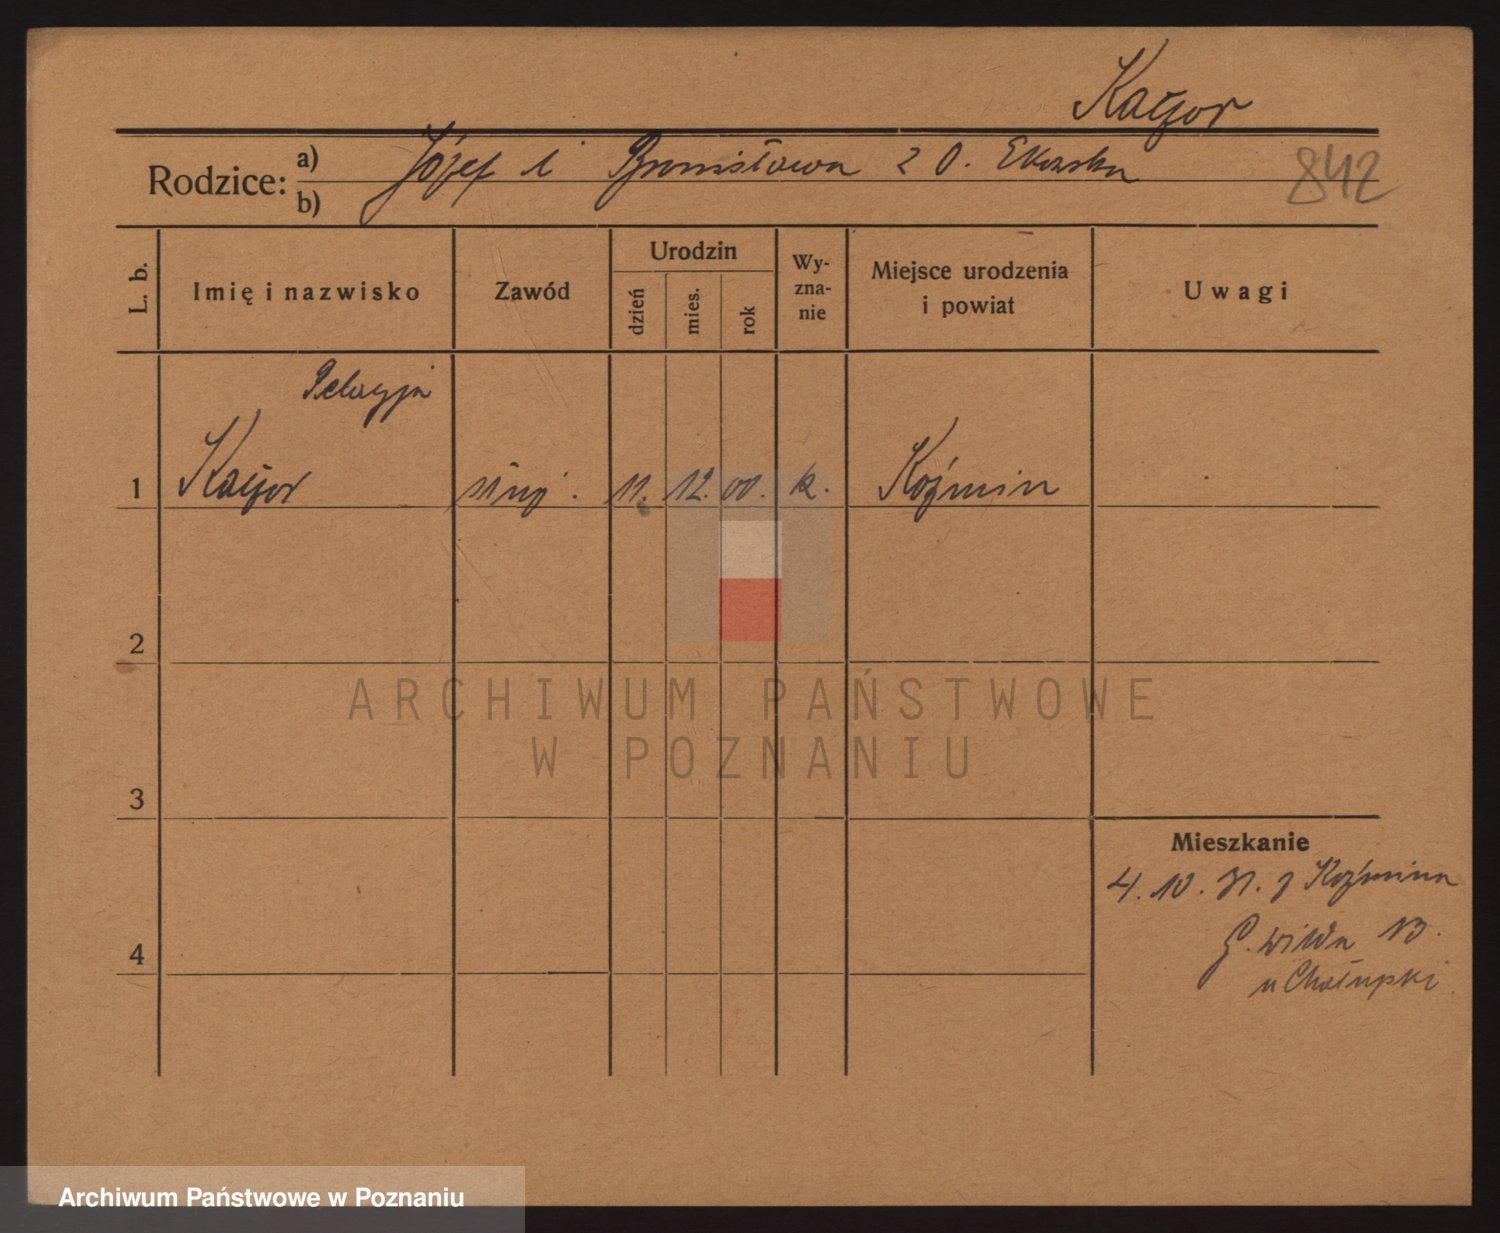 Kaczor
Rodzice: a) Józef i Bronisława z D.
b)
842
L. b.
Imię i nazwisko
Zawód
Urodzin
dzień
mies.
rok
Wy-
zna-
nie
Miejsce urodzenia
i powiat
Uwagi
Pelagja
1 Kaczor służ. 11. 12. 00. k. Koźmin
2
ARCHIWUM PAŃSTWOWE
W POZNANIU
3
Mieszkanie
4. 10. 31. z Koźmina
G. Wilda 13.
4
u Chałupki
Archiwum Państwowe w Poznaniu